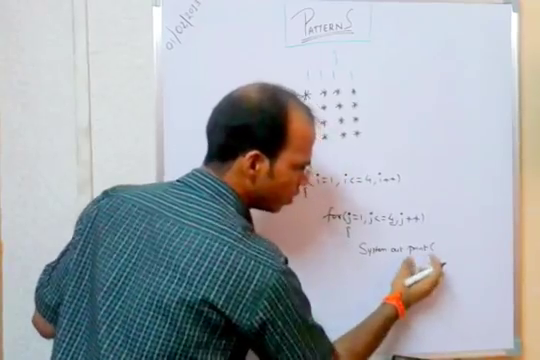 01/02/2023
PATTERNS
* * * *
* * * *
* * *
* * *
(i=1, i<=4, i++)
{
for(j=1, j<=4, j++)
{
System out print(